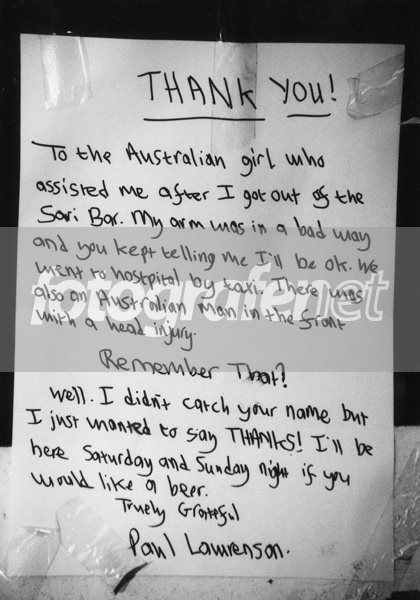 THANK YOU!
To the Australian girl who
assisted me after I got out of the
Sari Bar. My arm was in a bad way
and you kept telling me I'll be ok. We
went to hostpital by taxi. There was
also an Australian man in the front
with a head injury.
Remember That?
Well. I didn't catch your name but
I just wanted to say THANKS! I'll be
here Saturday and Sunday night if you
would like a beer.
Truely Grateful
Paul Lawrenson.
fotografenet